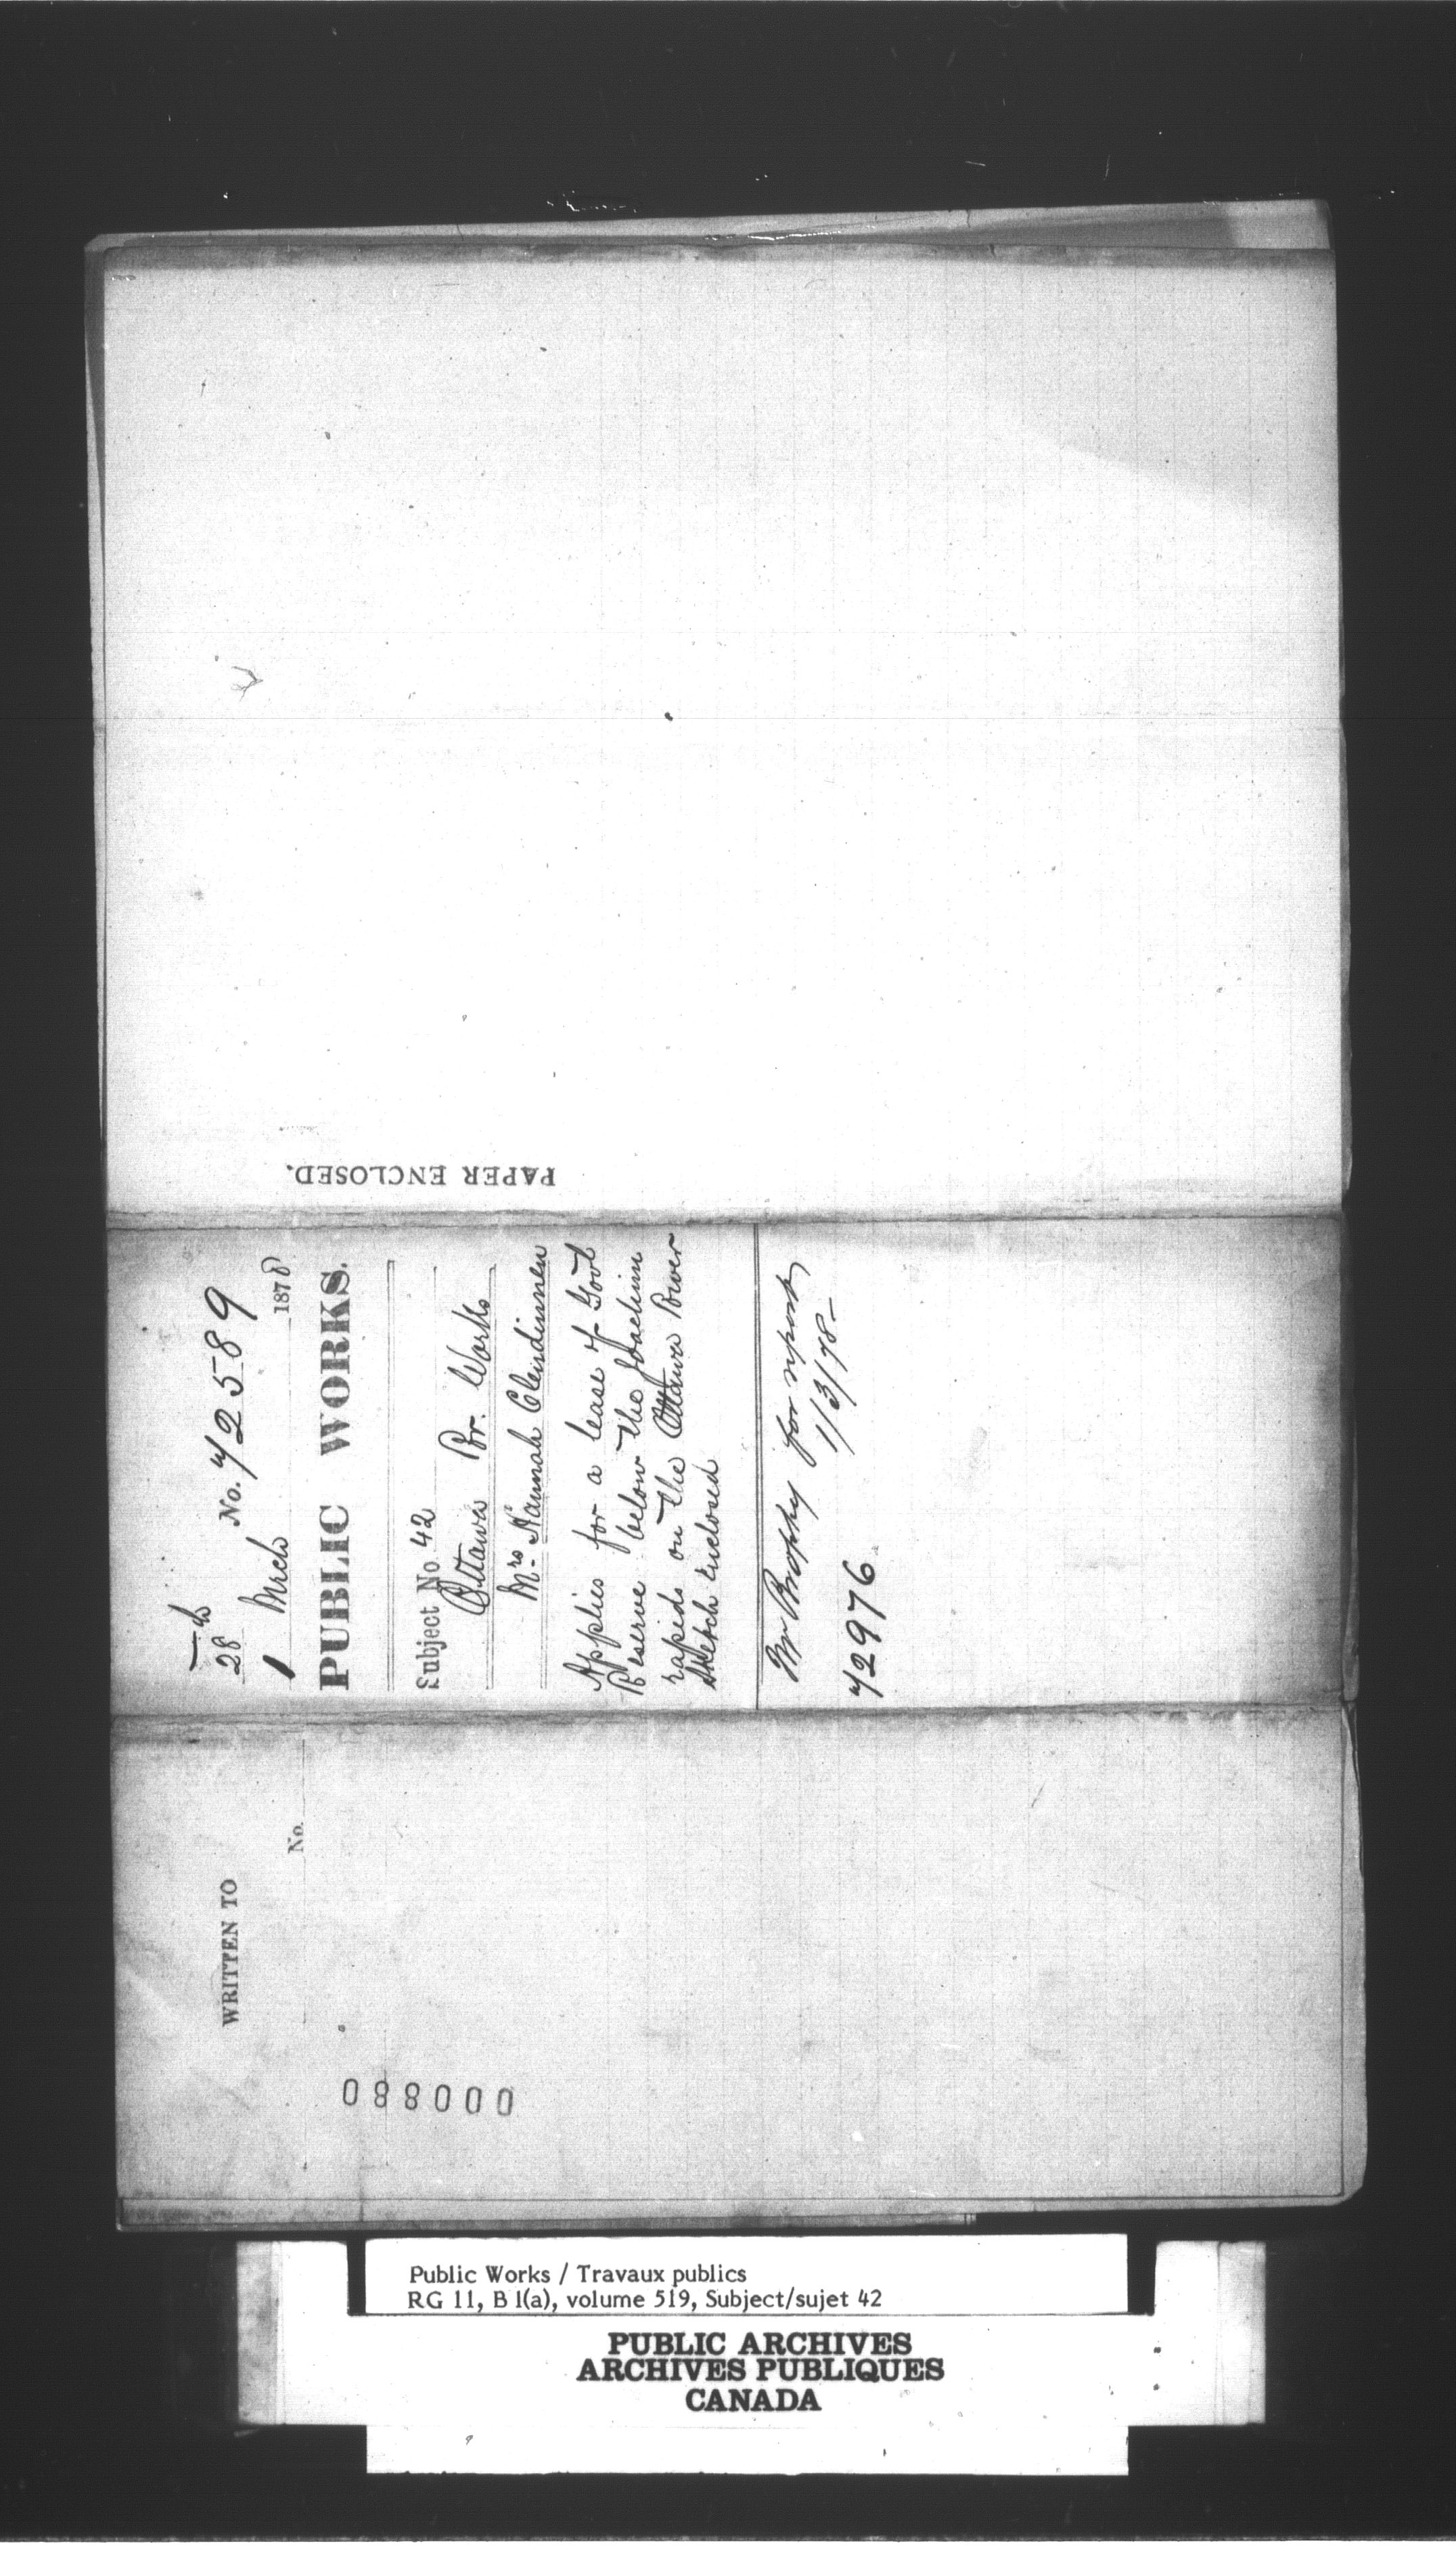 PAPER ENCLOSED.
28
No. 72589
1 Mrch 1878
PUBLIC WORKS.
Subject No 42
Ottawa Rr. Works
Mrs Hannah Clendinnen
Applies for a lease of Govt
Reserve below the Joachim
rapids on the Ottawa River
Sketch enclosed
Mr Brophy for report
1/3/78-
72976
WRITTEN TO
No.
088000
Public Works / Travaux publics
RG 11, B 1(a), volume 519, Subject/sujet 42
PUBLIC ARCHIVES
ARCHIVES PUBLIQUES
CANADA